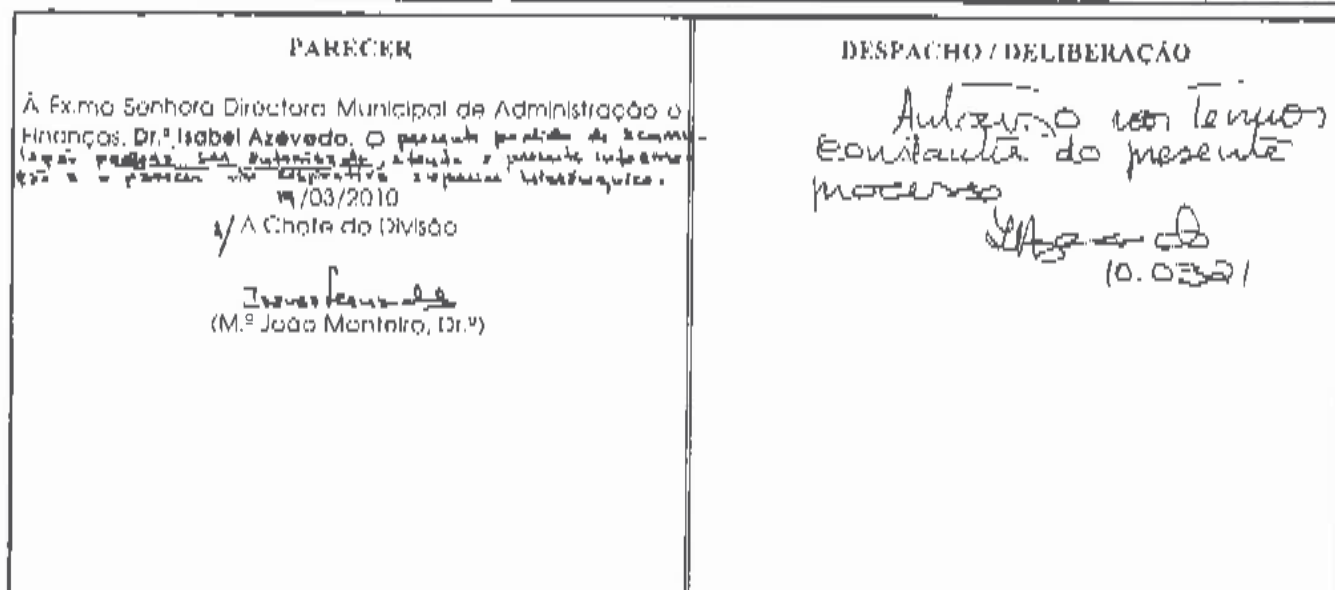 PARECER
À Ex.ma Senhora Directora Municipal de Administração e
Finanças, Dr.ª Isabel Azevedo. O presente pedido de acumu-
lação poderá ser autorizado, atento a presente informa
ção e o parecer do respectivo superior hierárquico.
/03/2010
A Chefe de Divisão
(M.ª João Monteiro, Dr.ª)
DESPACHO / DELIBERAÇÃO
Autorizo nos termos
constantes do presente
processo